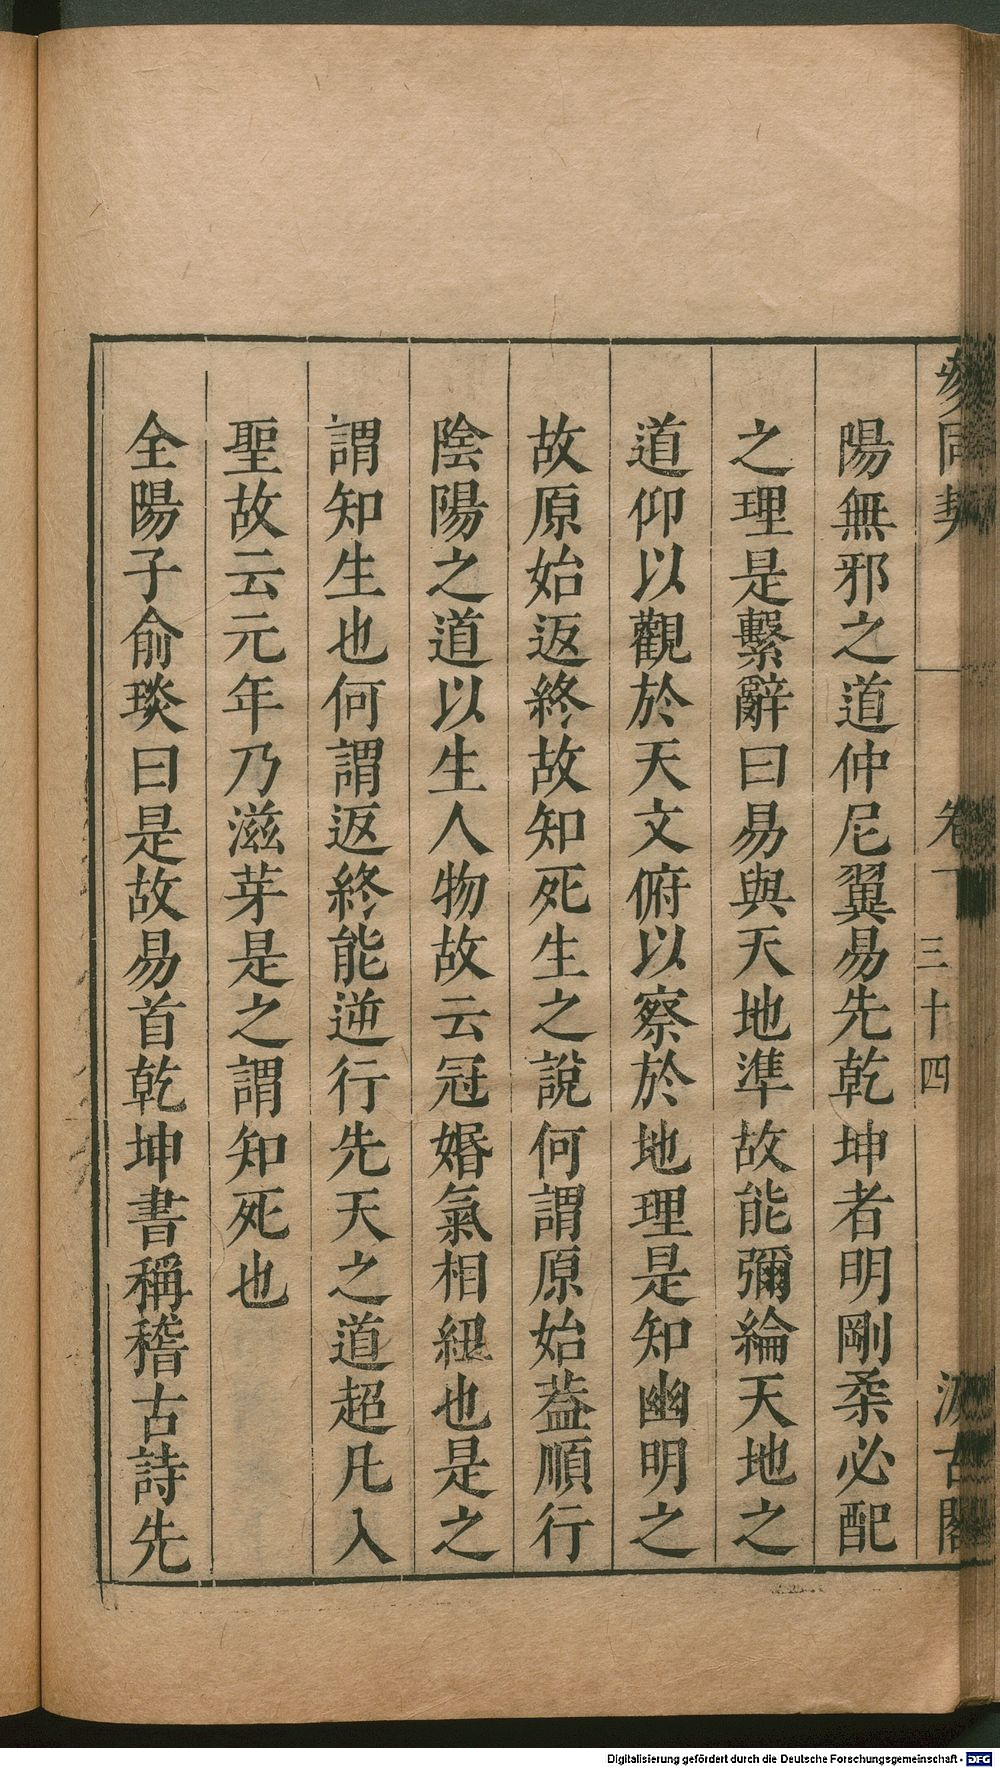 參同契 卷一 三十四 汲古閣
陽無邪之道仲尼翼易先乾坤者明剛柔必配
之理是繫辭曰易與天地準故能彌綸天地之
道仰以觀於天文俯以察於地理是知幽明之
故原始返終故知死生之說何謂原始葢順行
陰陽之道以生人物故云冠婚氣相紐也是之
謂知生也何謂返終能逆行先天之道超凡入
聖故云元年乃滋芽是之謂知死也
全陽子俞琰曰是故易首乾坤書稱稽古詩先
Digitalisierung gefördert durch die Deutsche Forschungsgemeinschaft - DFG